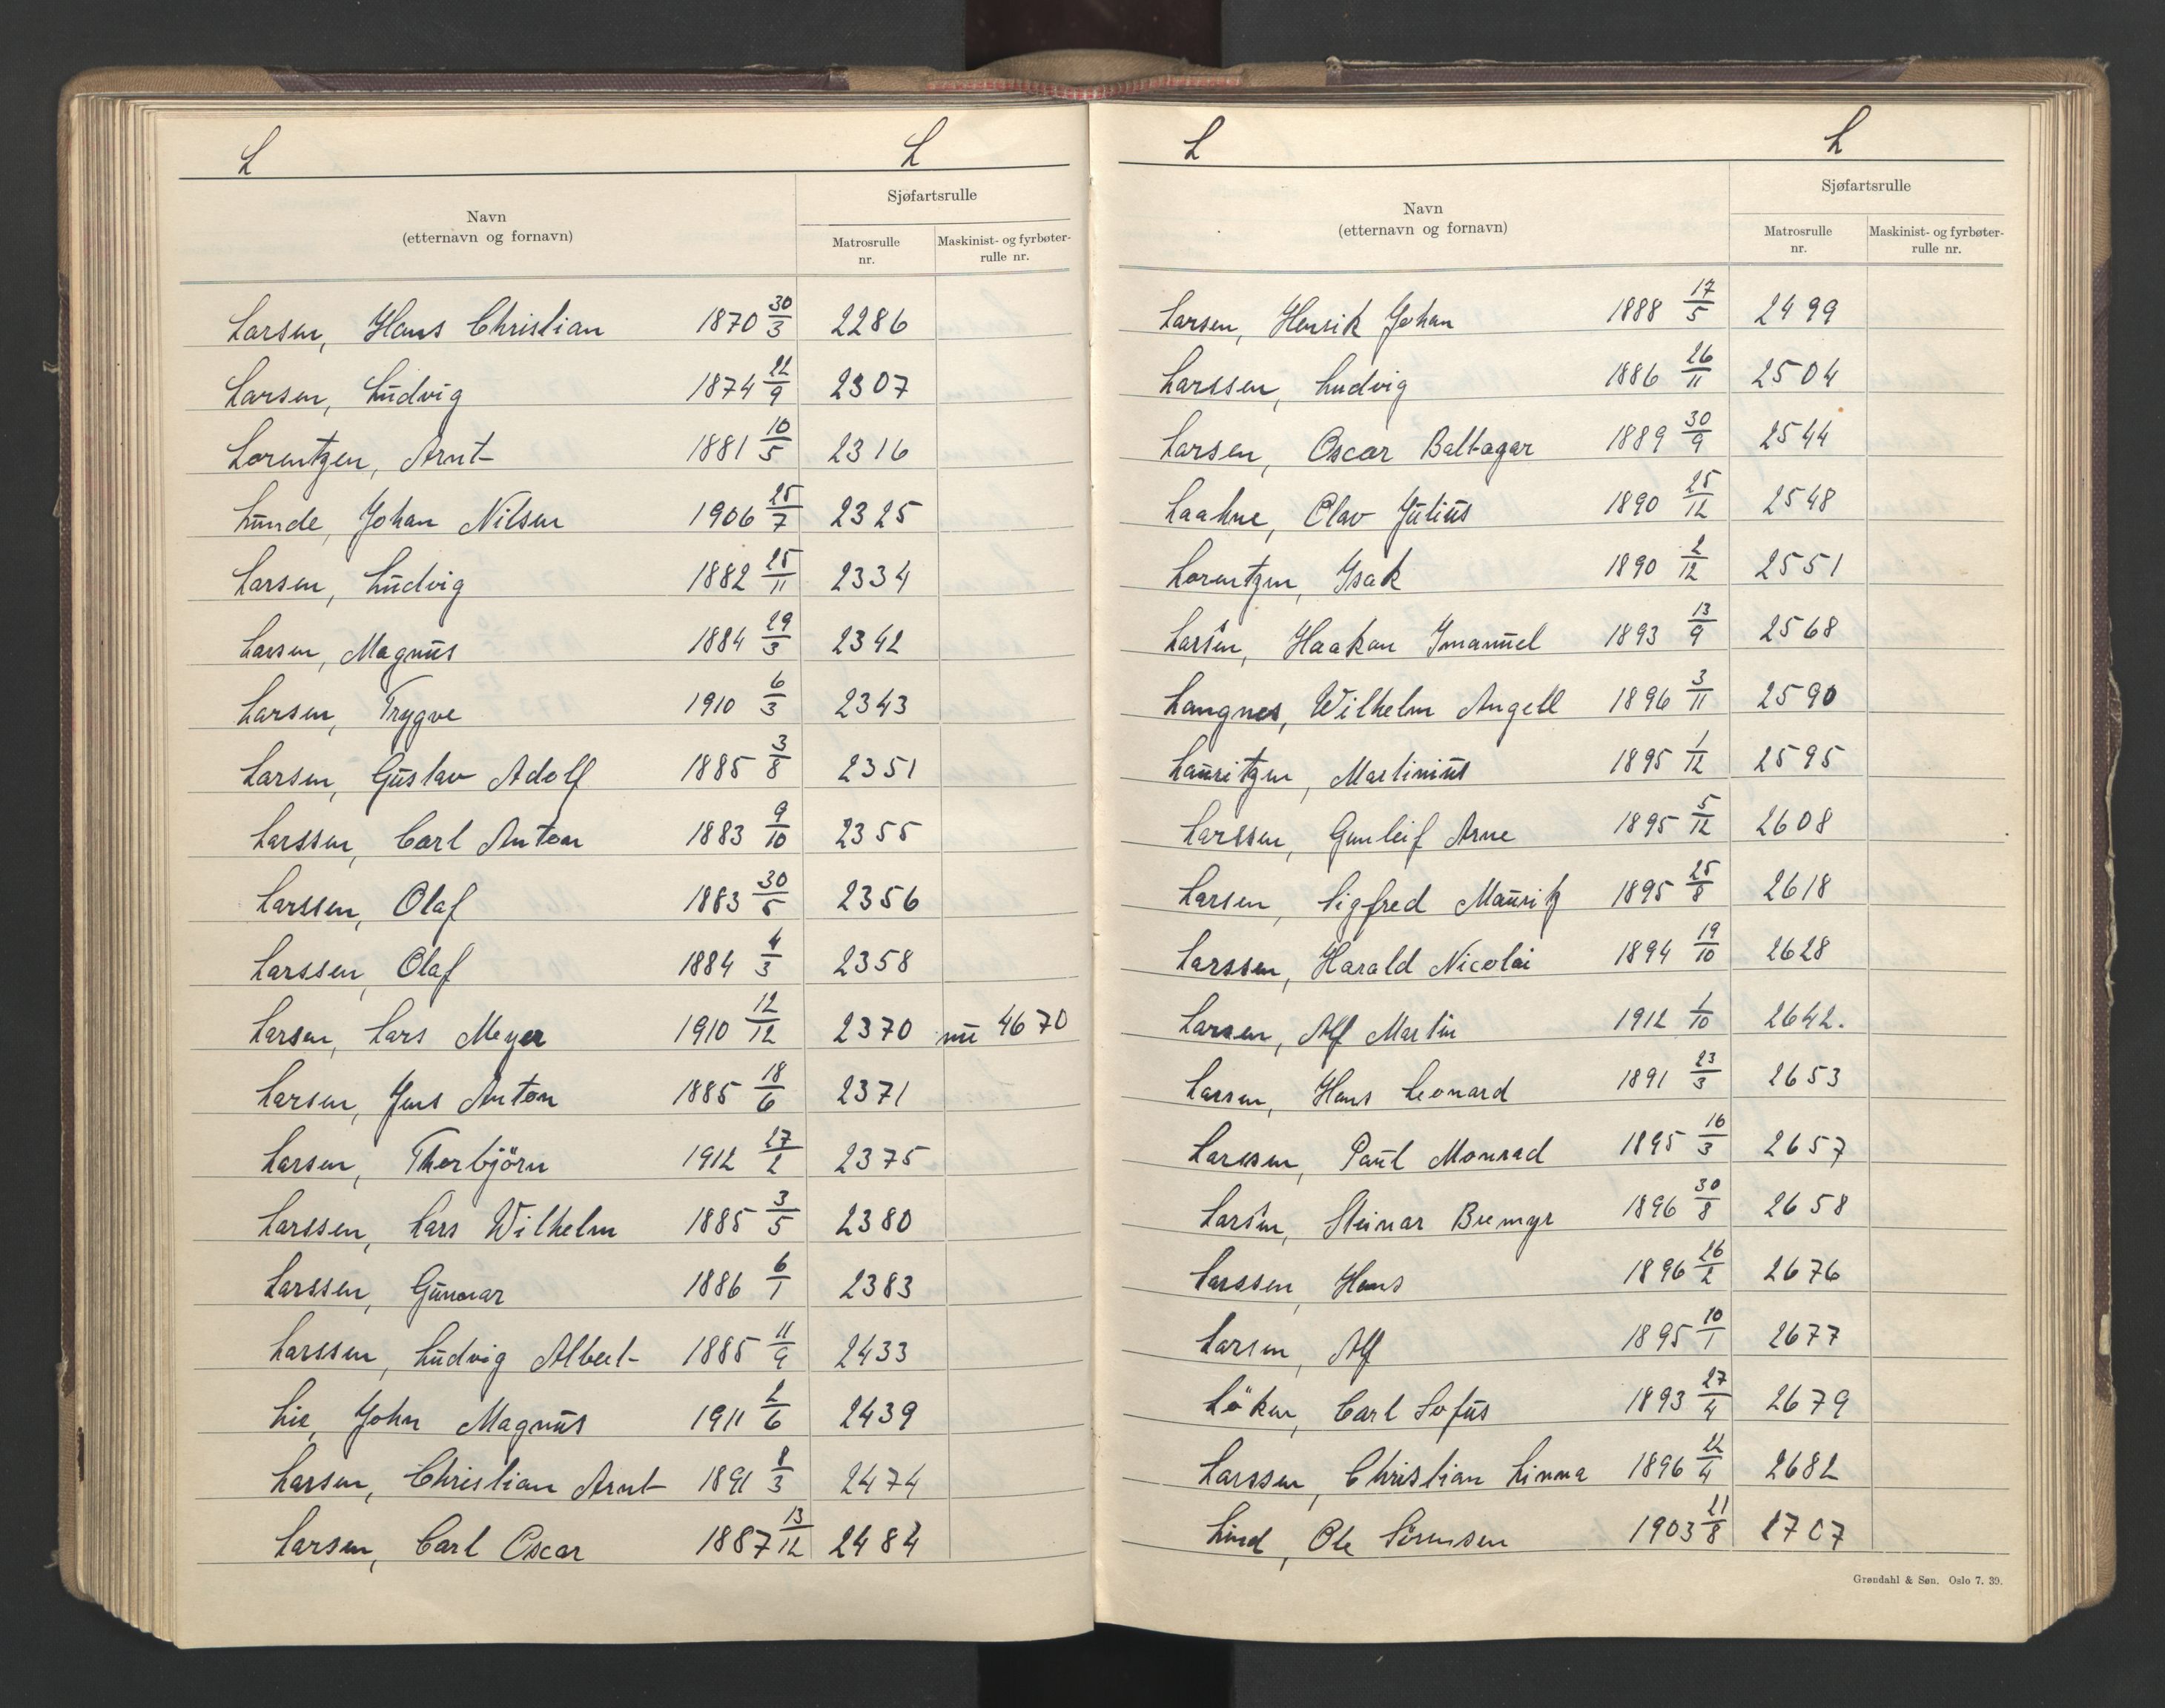 L L
Navn
(etternavn og fornavn)
Sjøfartsrulle
Matrosrulle
nr.
Maskinist- og fyrbøter-
rulle nr.
Larsen, Hans Christian 1870 30/3 2286
Larsen, Ludvig 1874 22/9 2307
Lorentzen, Arnt 1881 10/5 2316
Lunde, Johan Nilsen 1906 25/7 2325
Larsen, Ludvig 1882 25/11 2334
Larsen, Magnus 1884 29/3 2342
Larsen, Trygve 1910 6/3 2343
Larsen, Gustav Adolf 1885 3/8 2351
Larssen, Carl Anton 1883 9/10 2355
Larssen, Olaf 1883 30/5 2356
Larssen, Olaf 1884 4/3 2358
Larsen, Lars Meyer 1910 12/12 2370 nu 4670
Larsen, Jens Anton 1885 18/6 2371
Larsen, Thorbjörn 1912 27/2 2375
Larssen, Lars Wilhelm 1885 3/5 2380
Larssen, Gunnar 1886 6/1 2383
Larssen, Ludvig Albert 1885 11/9 2433
Lie, John Magnus 1911 2/6 2439
Larsen, Christian Arnt 1891 8/3 2474
Larsen, Carl Oscar 1887 13/12 2484
L L
Navn
(etternavn og fornavn)
Sjøfartsrulle
Matrosrulle
nr.
Maskinist- og fyrbøter-
rulle nr.
Larsen, Henrik Johan 1888 17/5 2499
Larssen, Ludvig 1886 26/11 2504
Larsen, Oscar Baltazar 1889 30/9 2544
Laahne, Olav Julius 1890 25/12 2548
Lorentzen, Isak 1890 2/12 2551
Larsen, Haakon Imanuel 1893 13/9 2568
Langnes, Wilhelm Angell 1896 3/11 2590
Lauritzen, Martinius 1895 1/12 2595
Larssen, Gunleif Arne 1895 5/12 2608
Larsen, Sigfred Mauritz 1895 25/8 2618
Larssen, Harald Nicolai 1894 19/10 2628
Larsen, Alf Martin 1912 1/10 2642.
Larsen, Hans Leonard 1891 23/3 2653
Larssen, Paul Monrad 1895 16/3 2657
Larsen, Steinar 1896 30/8 2658
Larssen, Hans 1896 26/2 2676
Larsen, Alf 1895 10/1 2677
Löken, Carl Sofus 1893 27/4 2679
Larssen, Christian Linna 1896 22/4 2682
Lind, Ole Sörensen 1903 21/8 2707
Grøndahl & Søn. Oslo 7. 39.